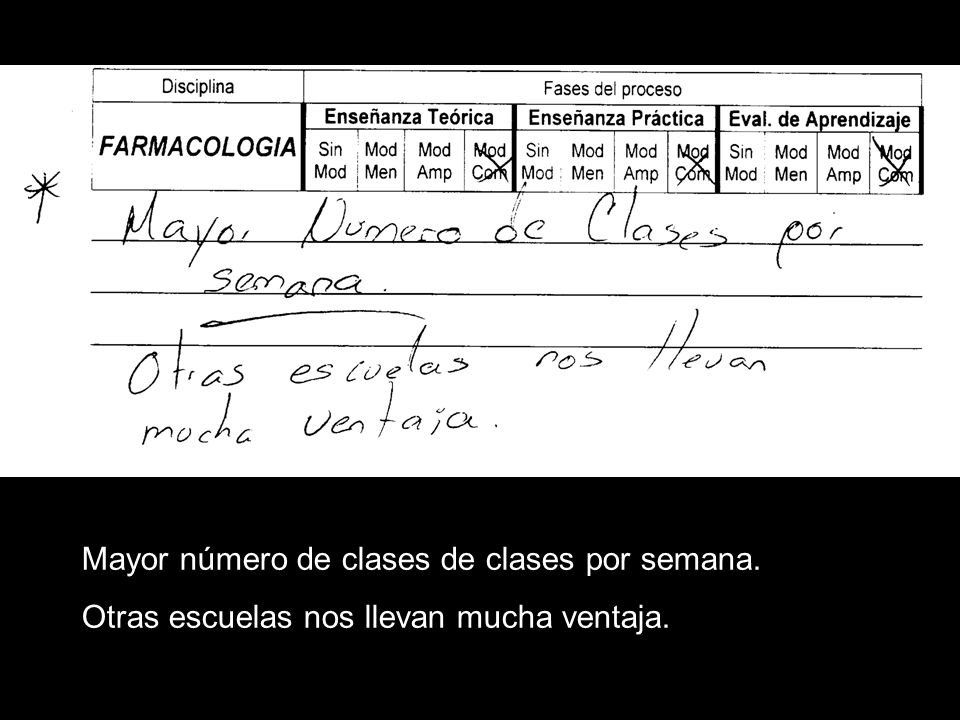 Disciplina Fases del proceso
FARMACOLOGIA Enseñanza Teórica Enseñanza Práctica Eval. de Aprendizaje
Sin Mod Mod Mod Sin Mod Mod Mod Sin Mod Mod Mod
Mod Men Amp Com Mod Men Amp Com Mod Men Amp Com
Mayor Numero de Clases por
semana.
Otras escuelas nos llevan
mucha ventaja.
Mayor número de clases de clases por semana.
Otras escuelas nos llevan mucha ventaja.